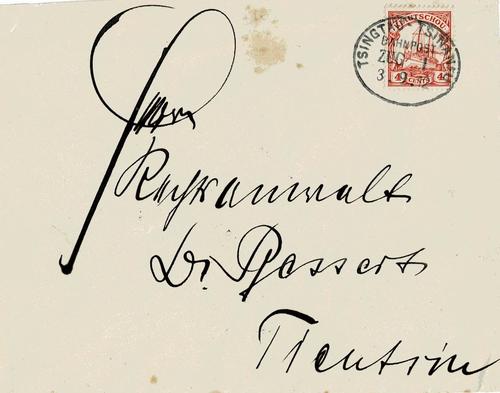 TSINGTAU - TSINANFU
BAHNPOST
ZUG 1
3. 9.
4 CENTS 4
Herrn
Rechtsanwalt
Dr.
Tientsin